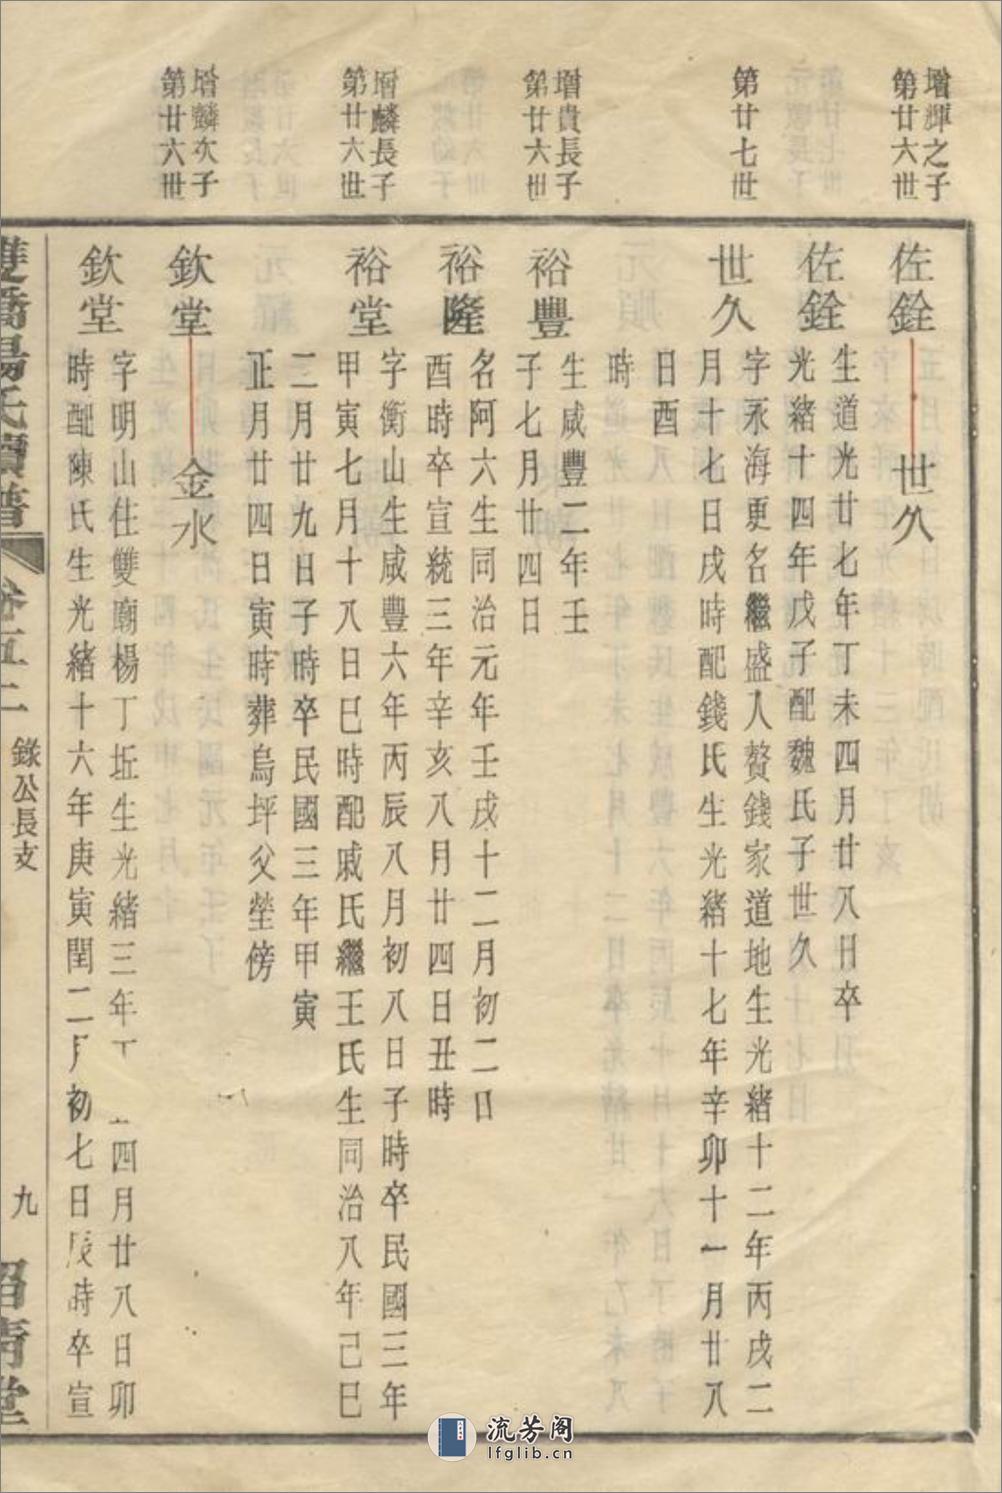 增渾之子
第廿六世
佐銓
世久
佐銓
生道光廿七年丁未四月廿八日卒
光緒十四年戊子配魏氏子世久
第廿七世
世久
字永海更名繼盛人贅錢家道地生光緒十二年丙戌二
月十七日戌時配錢氏生光緒十七年辛卯十一月廿八
日酉
時
增貴長子
第廿六世
裕豐
生咸豐二年壬
子七月廿四日
裕隆
名阿六生同治元年壬戌十二月初二日
酉時卒宣統三年辛亥八月廿四日丑時
增麟長子
第廿六世
裕堂
字衡山生咸豐六年丙辰八月初八日子時卒民國三年
甲寅七月十八日巳時配戚氏繼王氏生同治八年己巳
二月廿九日子時卒民國三年甲寅
正月廿四日寅時葬烏坪父塋傍
增麟次子
第廿六世
欽堂
金水
欽堂
字明山住雙廟楊丁坵生光緒三年丁 四月廿八日卯
時配陳氏生光緒十六年庚寅閏二月初七日辰時卒宣
雙橋楊氏續譜
卷五二
錄公長支
九
四青堂
流芳阁
lfglib.cn